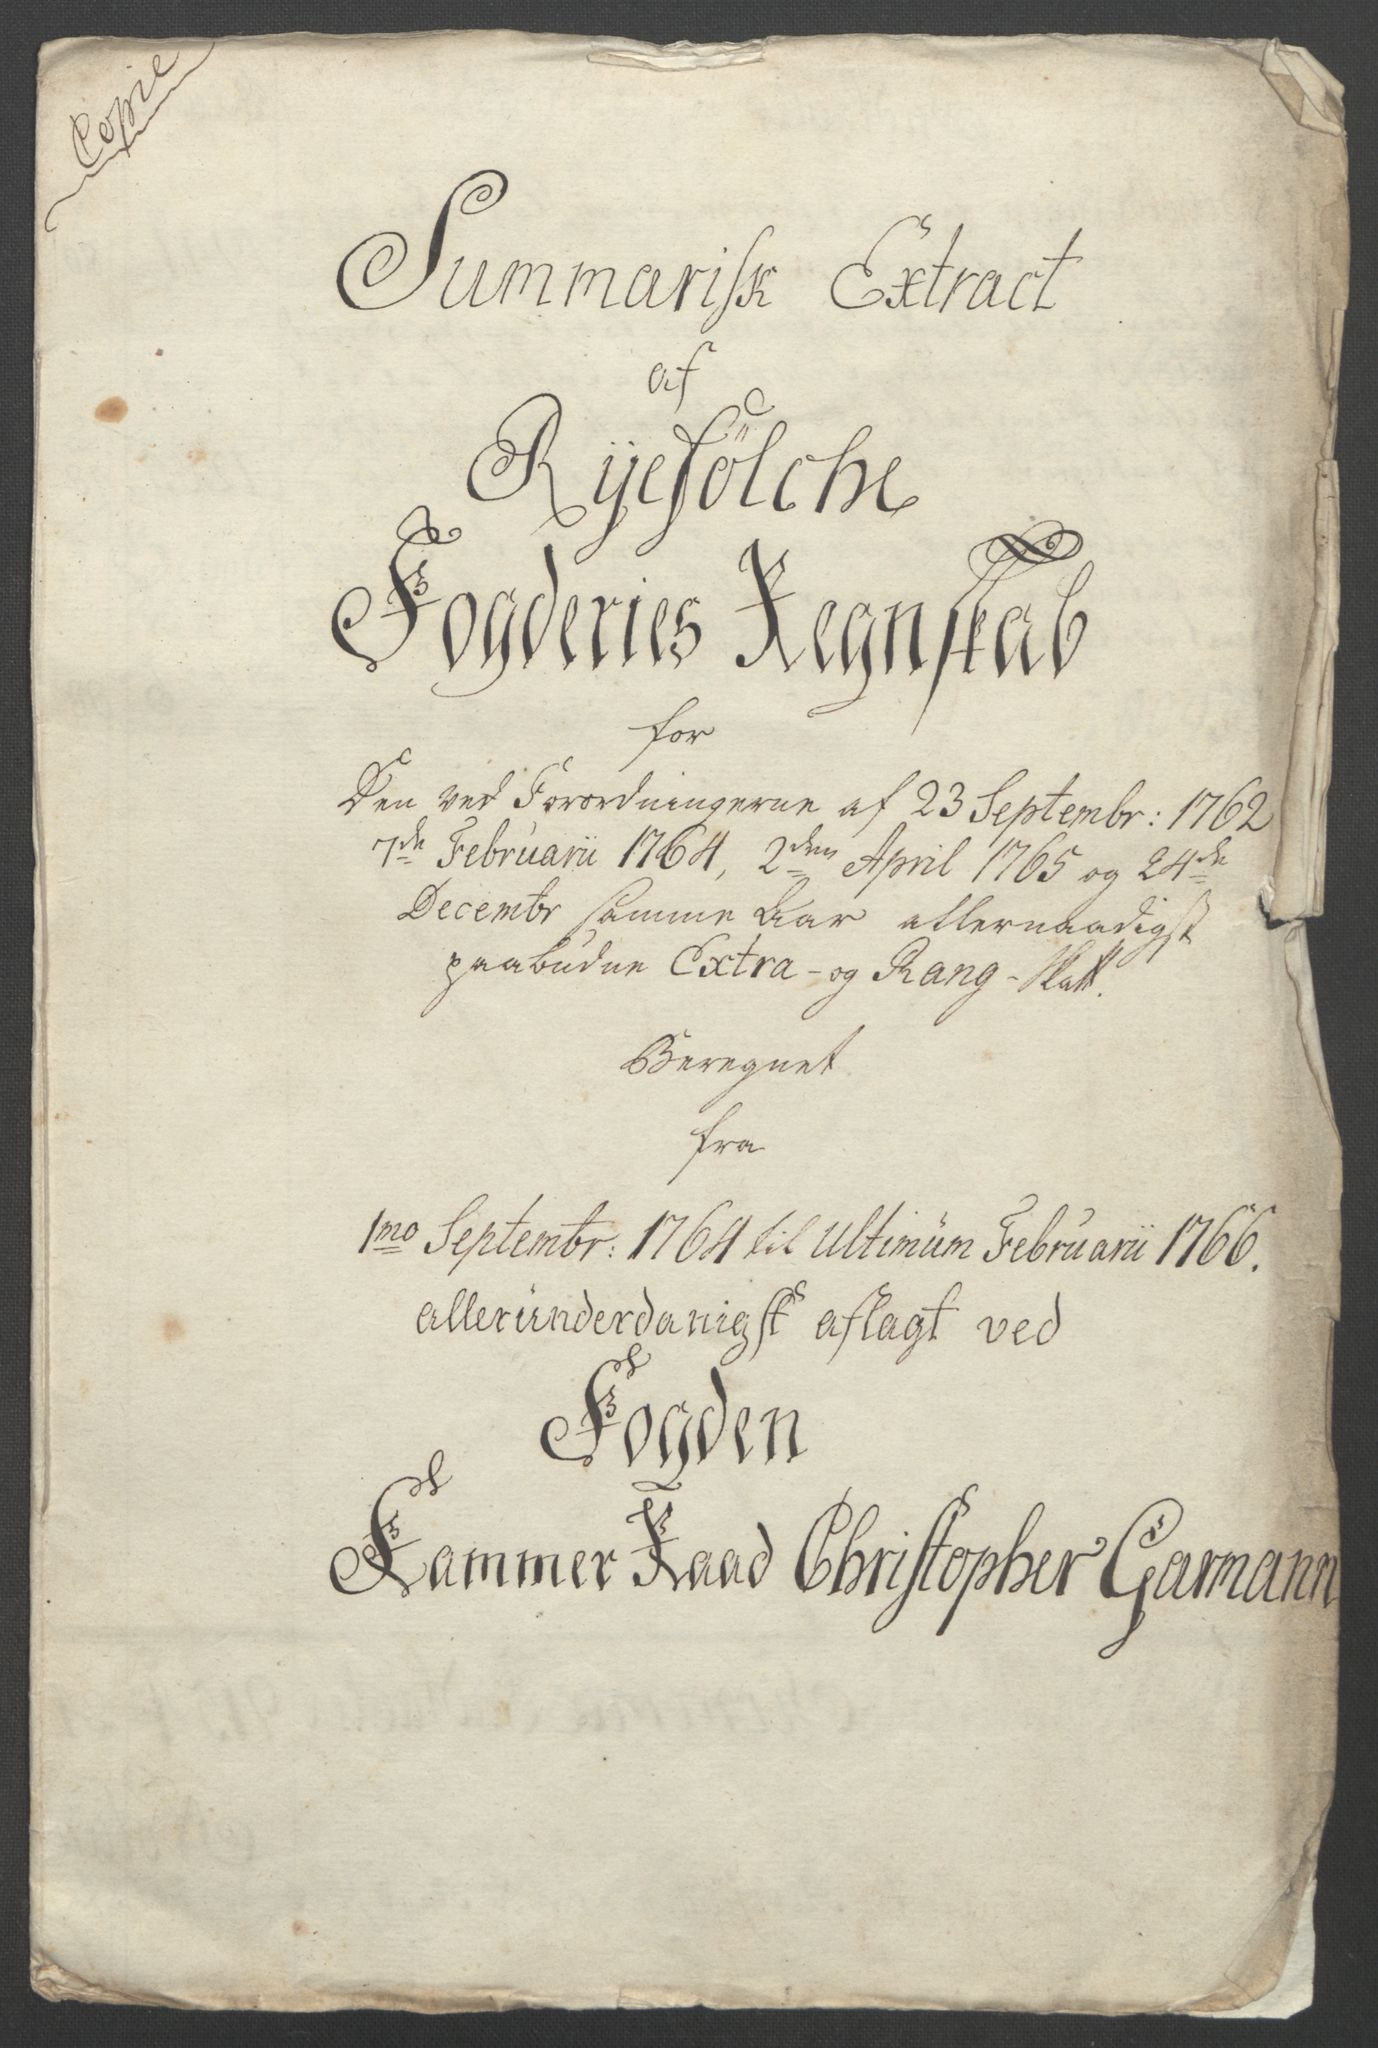 Copie
Summarisk Extract
af
Ryefölche
Fogderies Regnskab
for
Den ved Forordningerne af 23 Septembr: 1762
7de Februarii 1764, 2den April 1765 og 24de
Decembr samme Aar allernaadigst
paabudne Extra- og Rang-Skatt.
Beregnet
fra
1mo Septembr: 1764 til Ultimum Februarii 1766.
alleründerdanigst aflagt ved
Fogden
Kammer Raad Christopher Garmann